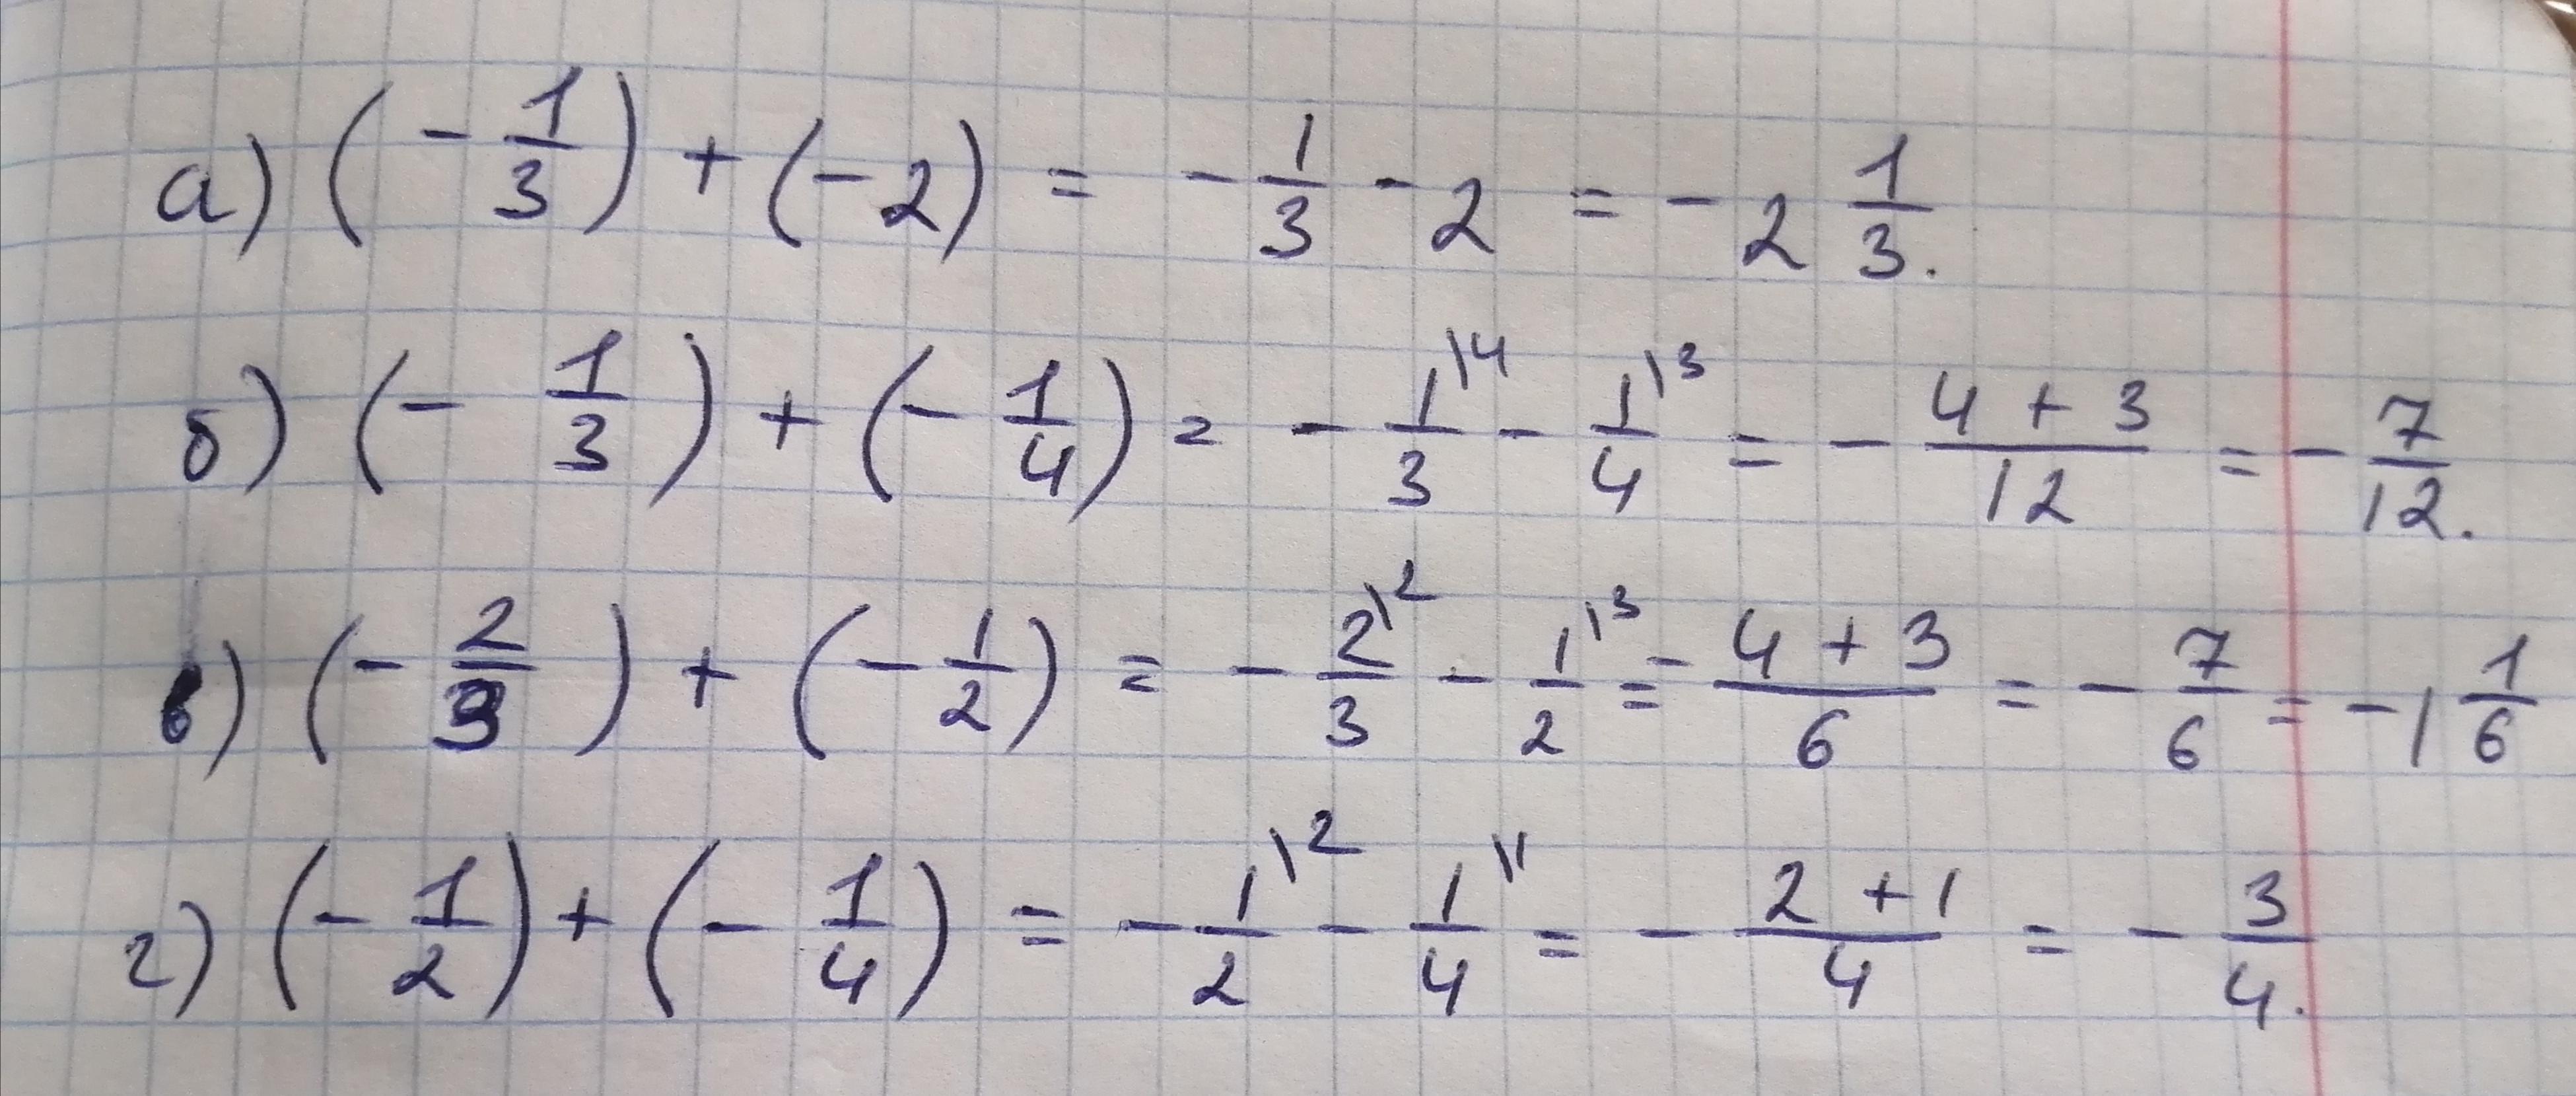 а) (-1/3) + (-2) = -1/3 - 2 = -2 1/3.
б) (-1/3) + (-1/4) = -1\4/3 - 1\3/4 = -4+3/12 = -7/12.
в) (-2/3) + (-1/2) = -2\2/3 - 1\3/2 = -4+3/6 = -7/6 = -1 1/6
г) (-1/2) + (-1/4) = -1\2/2 - 1\1/4 = -2+1/4 = -3/4.